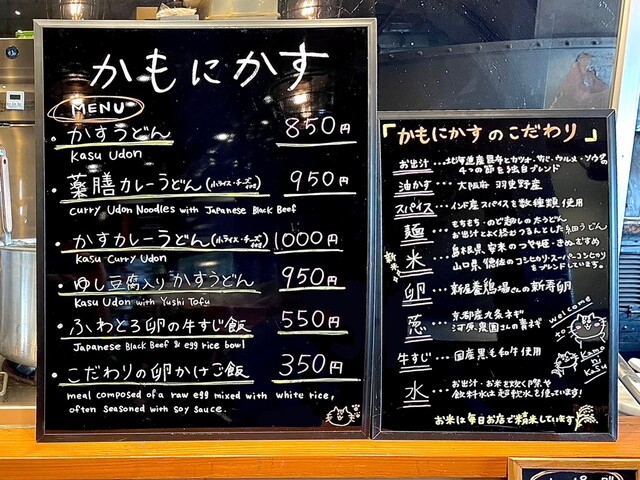 かもにかす
MENU
・かすうどん 850円
Kasu Udon
・薬膳カレーうどん(小ライス・チーズ付) 950円
Curry Udon Noodles with Japanese Black Beef
・かすカレーうどん(小ライス・チーズ付) 1000円
Kasu Curry Udon
・ゆし豆腐入りかすうどん 950円
Kasu Udon with Yushi Tofu
・ふわとろ卵の牛すじ飯 550円
Japanese Black Beef & egg rice bowl
・こだわりの卵かけご飯 350円
meal composed of a raw egg mixed with white rice,
often seasoned with soy sauce.
「かもにかすのこだわり」
お出汁…北海道産昆布とカツオ・サバ・ウルメ・ソウダの
4つの節を独自ブレンド
油かす…大阪府 羽曳野産
スパイス…インド産スパイスを数種類使用
麺…もちもち・のど越しの太うどん
お出汁とよく絡むつるんとした細うどん
新米
米…島根県 安来のつや姫・きぬむすめ
山口県 徳佐のコシヒカリ・スーパーコシヒカリ
をブレンドしています。
卵…新屋養鶏場さんの新寿卵
葱…京都産九条ネギ
河原農園さんの青ネギ
牛すじ…国産黒毛和牛使用
水…お出汁・お米を炊く際や
飲料水は超軟水を使っています!
welcome
Kamo
ni
Kasu
お米は毎日お店で精米しています